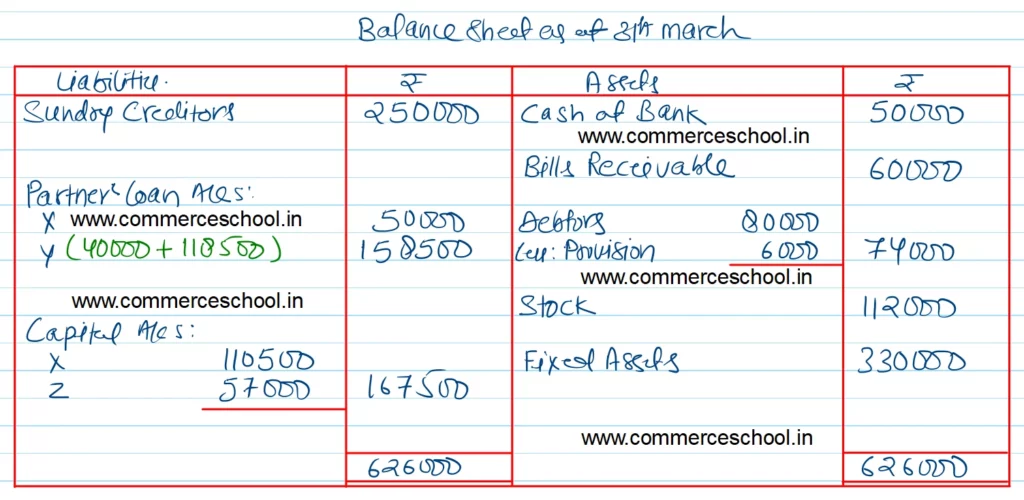 Balance Sheet as at 31st March
Liabilities ₹ Assets ₹
Sundry Creditors 250000 Cash at Bank 50000
www.commerceschool.in
Bills Receivable 60000
Partner's Loan A/cs:
X www.commerceschool.in 50000 Debtors 80000
Y (40000 + 118500) 158500 Less: Provision 6000 74000
www.commerceschool.in
www.commerceschool.in
Stock 112000
Capital A/cs:
X 110500 Fixed Assets 330000
Z 57000 167500
www.commerceschool.in
626000 626000